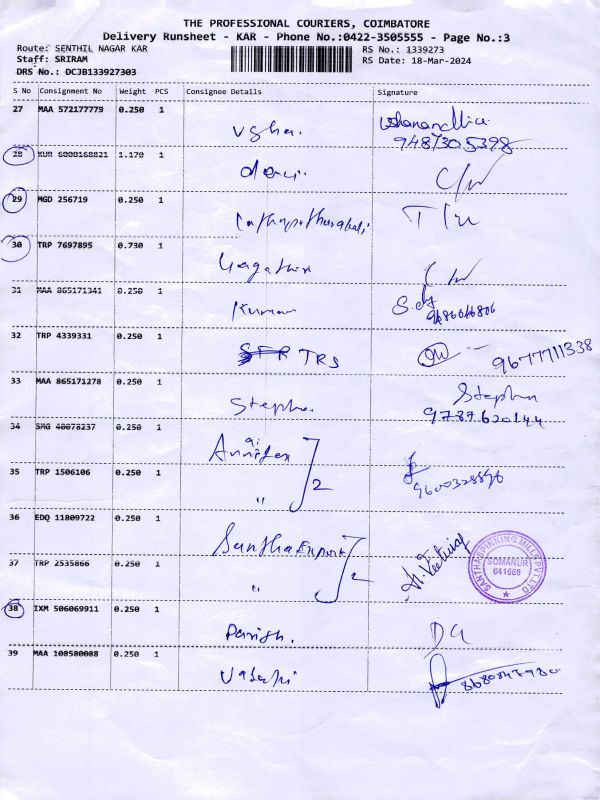 THE PROFESSIONAL COURIERS, COIMBATORE
Delivery Runsheet - KAR - Phone No.:0422-3505555 - Page No.:3
Route: SENTHIL NAGAR KAR
RS No.: 1339273
Staff: SRIRAM
RS Date: 18-Mar-2024
DRS No.: DCJB133927303
S No Consignment No Weight PCS Consignee Details Signature
27 MAA 572177779 0.250 1
Usha.
9487305398
28 KUR 6000168821 1.170 1
devi.
C/W
29 MGD 256719 0.250 1
30 TRP 7697895 0.730 1
C/W
31 MAA 865171341 0.250 1
Kumar
32 TRP 4339331 0.250 1
TRS
9677711338
33 MAA 865171278 0.250 1
Stephn
9787620144
34 SMG 40078237 0.250 1
35 TRP 1506106 0.250 1
" 2
9600328896
36 EDQ 11809722 0.250 1
37 TRP 2535866 0.250 1
" 2
SANTHA SPINNING MILLS PVT LTD
SOMANUR
641668
38 IXM 506069911 0.250 1
39 MAA 108580088 0.250 1